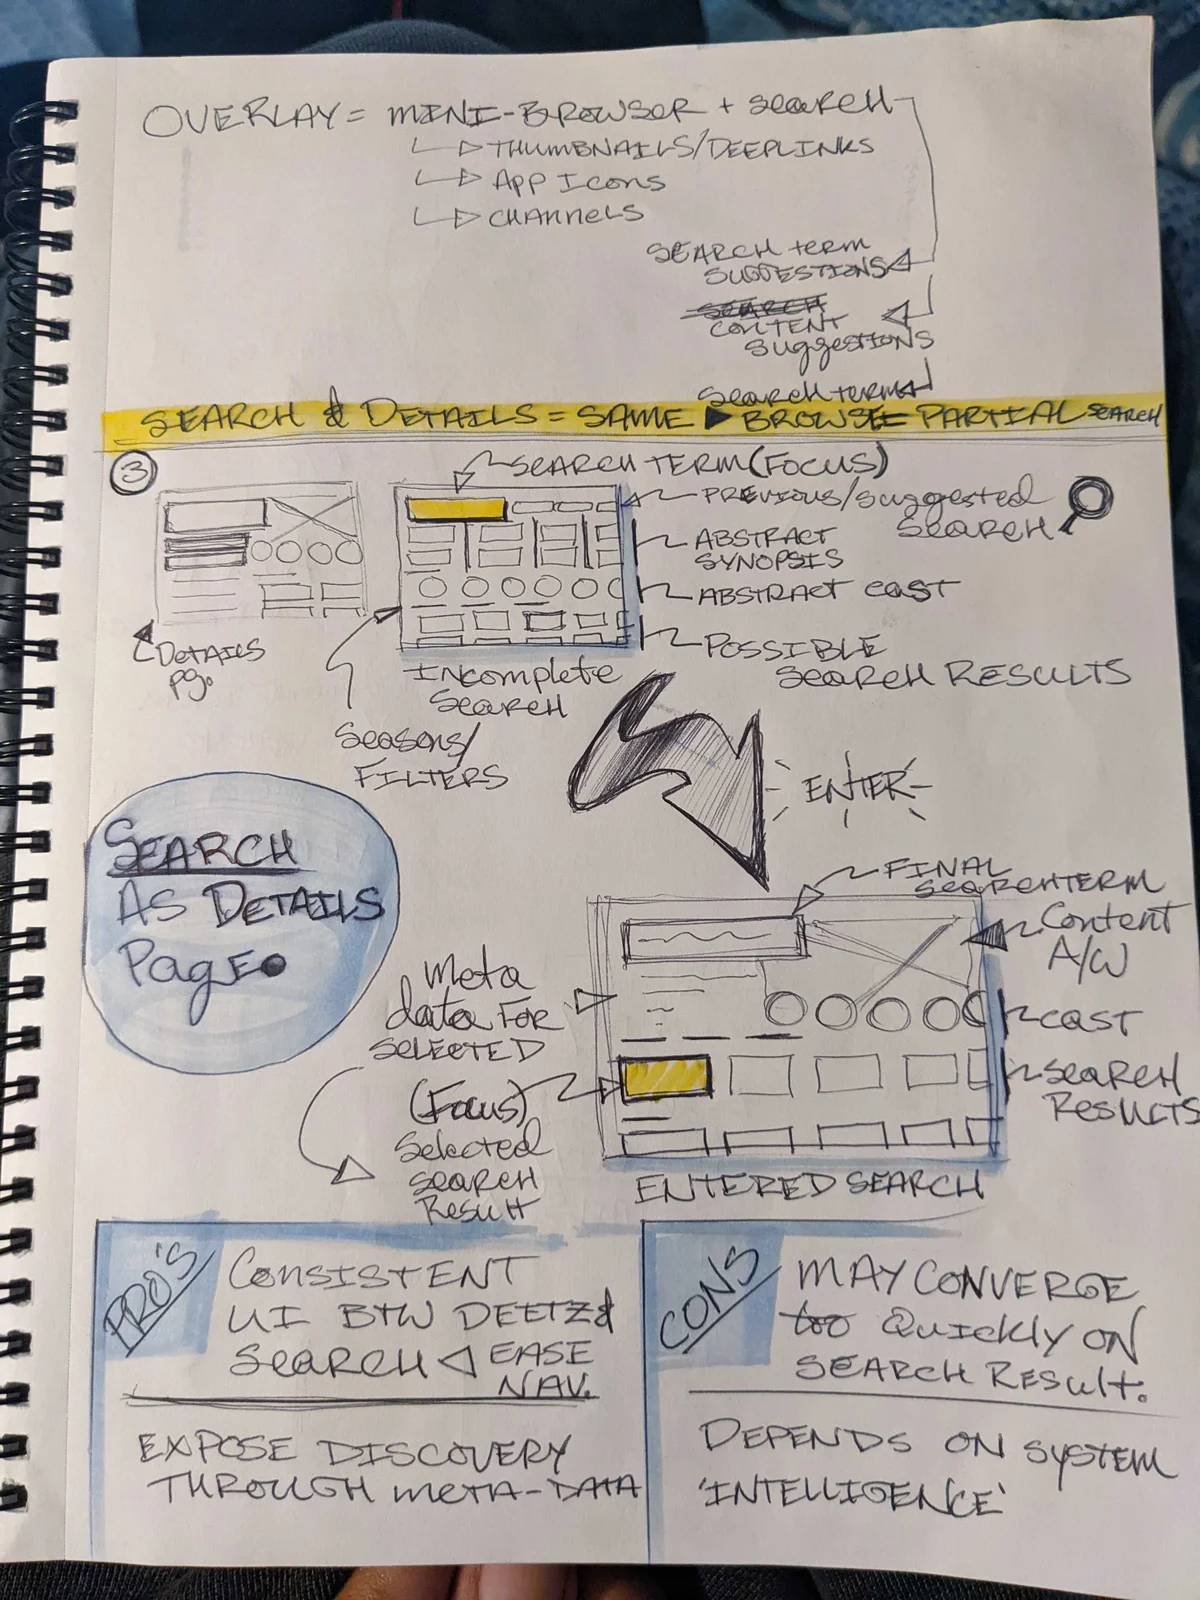 OVERLAY = MINI-BROWSER + SEARCH
THUMBNAILS/DEEPLINKS
APP ICONS
CHANNELS
SEARCH TERM
SUGGESTIONS
SEARCH
CONTENT
SUGGESTIONS
SEARCH TERM
SEARCH & DETAILS = SAME ▶ BROWSE = PARTIAL SEARCH
3
SEARCH TERM (FOCUS)
PREVIOUS/SUGGESTED
SEARCH
ABSTRACT
SYNOPSIS
ABSTRACT CAST
POSSIBLE
SEARCH RESULTS
DETAILS
PG.
INCOMPLETE
SEARCH
SEASONS/
FILTERS
ENTER
SEARCH
AS DETAILS
PAGE
FINAL
SEARCH TERM
CONTENT
A/W
META
DATA FOR
SELECTED
CAST
(FOCUS)
SELECTED
SEARCH
RESULT
SEARCH
RESULTS
ENTERED SEARCH
PRO'S
CONSISTENT
UI BTW DEETZ &
SEARCH ◁ EASE
NAV.
EXPOSE DISCOVERY
THROUGH META-DATA
CONS
MAY CONVERGE
too QUICKLY ON
SEARCH RESULT.
DEPENDS ON SYSTEM
'INTELLIGENCE'